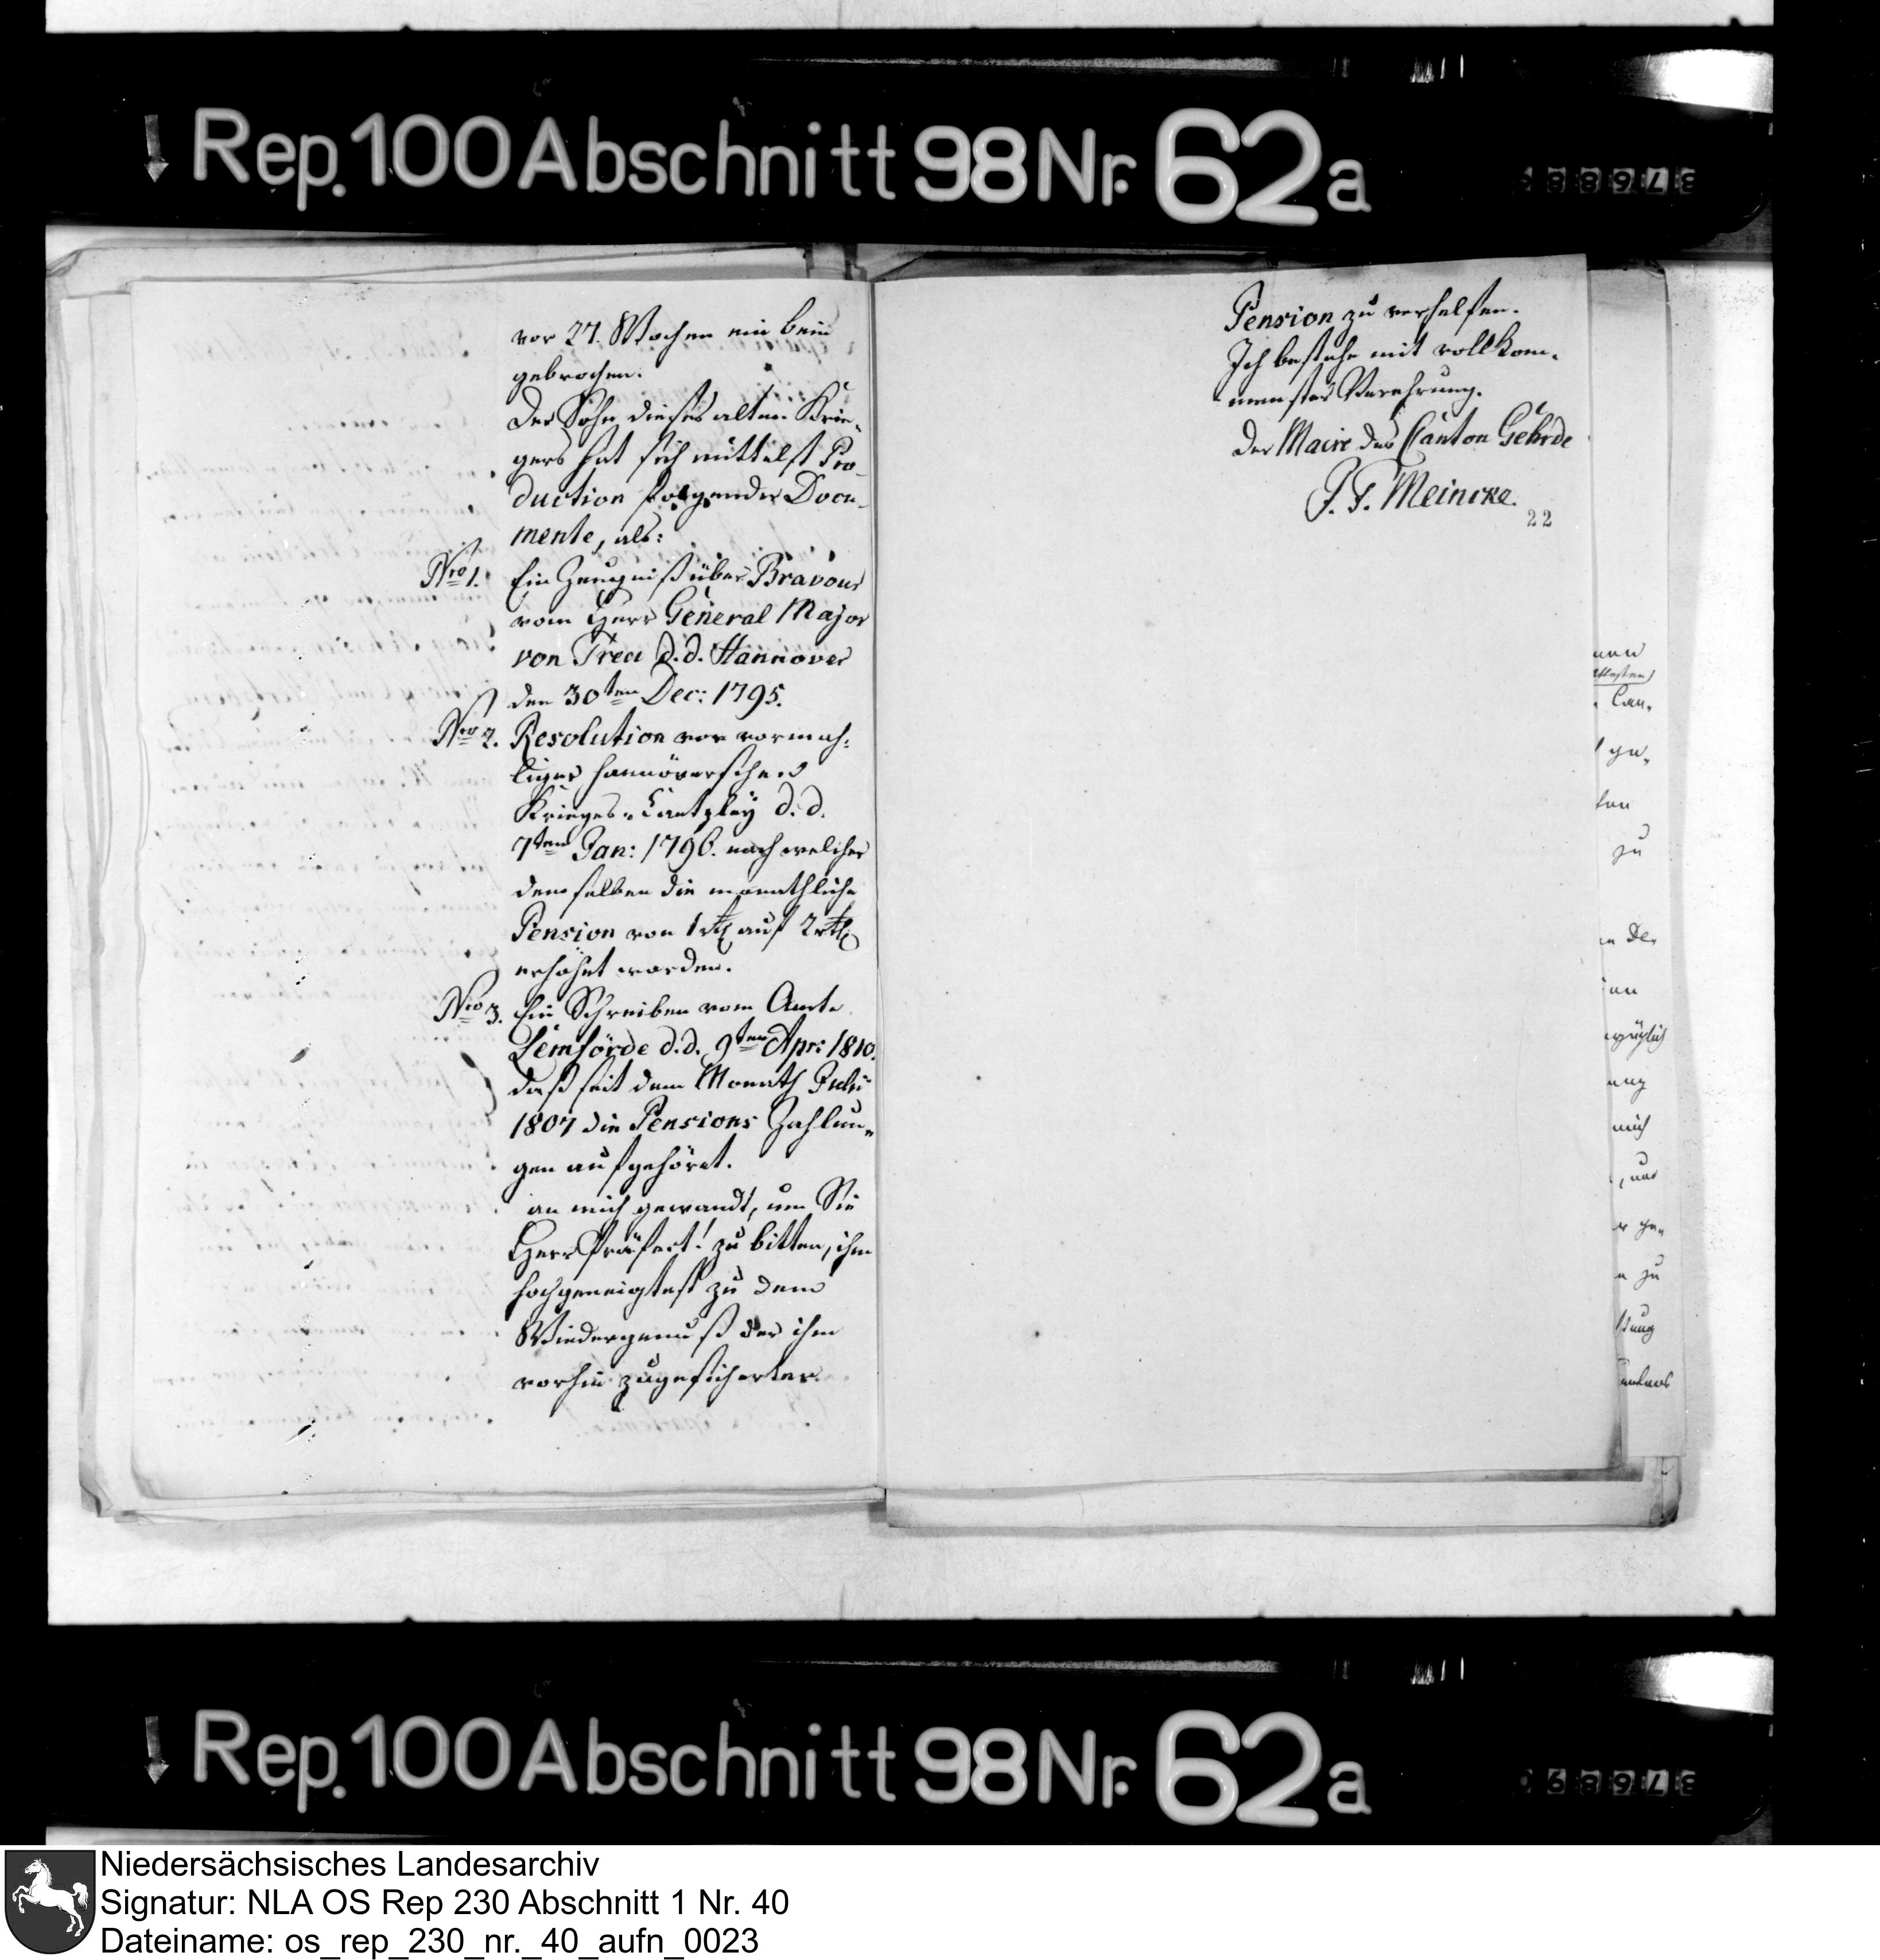 Rep. 100 Abschnitt 98 Nr. 62a
vor 27. Wochen ein bein
gebrochen.
Der Sohn dieses alten Krie-
gers hat sich mittelst Pro-
duction folgender Docu-
mente, als:
Nro 1. Ein Zeugniß über Bravour
vom Herr General Major
von Drea d. d. Hannover
den 30ten Dec: 1795.
Nro 2. Resolution von vormah-
liger hannöverschen
Krieges-Cantzley d. d.
7ten Jan: 1796. nach welcher
demselben die monathliche
Pension von 1 rth auf 2 rth
erhöhet worden.
Nro 3. Ein Schreiben vom Amte
Lemförde d. d. 9ten Apr: 1810.
daß seit dem Monath Julii
1807 die Pensions Zahlun-
gen aufgehöret.
an mich gewandt, um Sie
Herr Präfect! zu bitten, ihm
hochgeneigtest zu dem
Wiedergenuß der ihm
vorhin zugesicherter
Pension zu verhelfen.
Ich bestehe mit vollkom-
menster Verehrung.
Der Maire des Canton Gehrde
F. F. Meincke.
22
nen
Can-
ge-
ten
zu
der
ung
mich
zu
Rep. 100 Abschnitt 98 Nr. 62a
Niedersächsisches Landesarchiv
Signatur: NLA OS Rep 230 Abschnitt 1 Nr. 40
Dateiname: os_rep_230_nr._40_aufn_0023